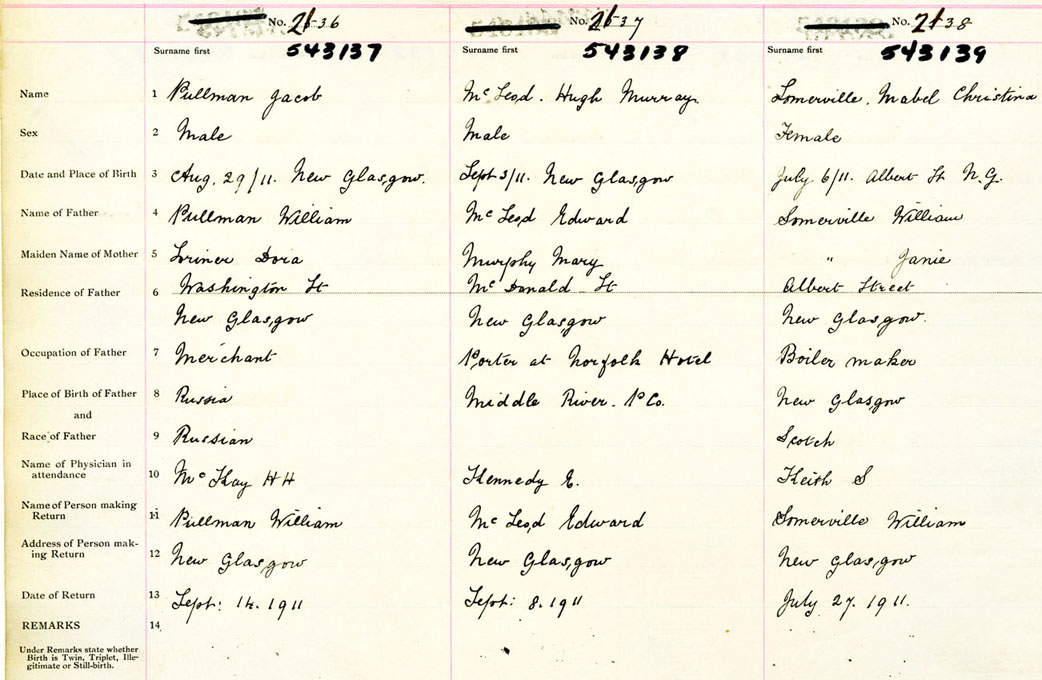 No. 2536 No. 2537 No. 2538
Surname first 543137 Surname first 543138 Surname first 543139
Name 1 Pullman Jacob Mc Leod. Hugh Murray. Somerville. Mabel Christina
Sex 2 Male Male Female
Date and Place of Birth 3 Aug. 29/11. New Glasgow. Sept 3/11. New Glasgow July 6/11. Albert St N.G.
Name of Father 4 Pullman William Mc Leod Edward Somerville William
Maiden Name of Mother 5 Loriner Dora Murphy Mary " Janie
Residence of Father 6 Washington St Mc Donald St Albert Street
New Glasgow New Glasgow New Glasgow.
Occupation of Father 7 Merchant Porter at Norfolk Hotel Boiler maker
Place of Birth of Father 8 Russia Middle River. P Co. New Glasgow
and
Race of Father 9 Russian Scotch
Name of Physician in
attendance 10 Mc Kay H H Kennedy E. Keith S
Name of Person making
Return 11 Pullman William Mc Leod Edward Somerville William
Address of Person mak-
ing Return 12 New Glasgow New Glasgow New Glasgow
Date of Return 13 Sept: 14. 1911 Sept: 8. 1911 July 27. 1911.
REMARKS 14
Under Remarks state whether
Birth is Twin, Triplet, Ille-
gitimate or Still-birth.